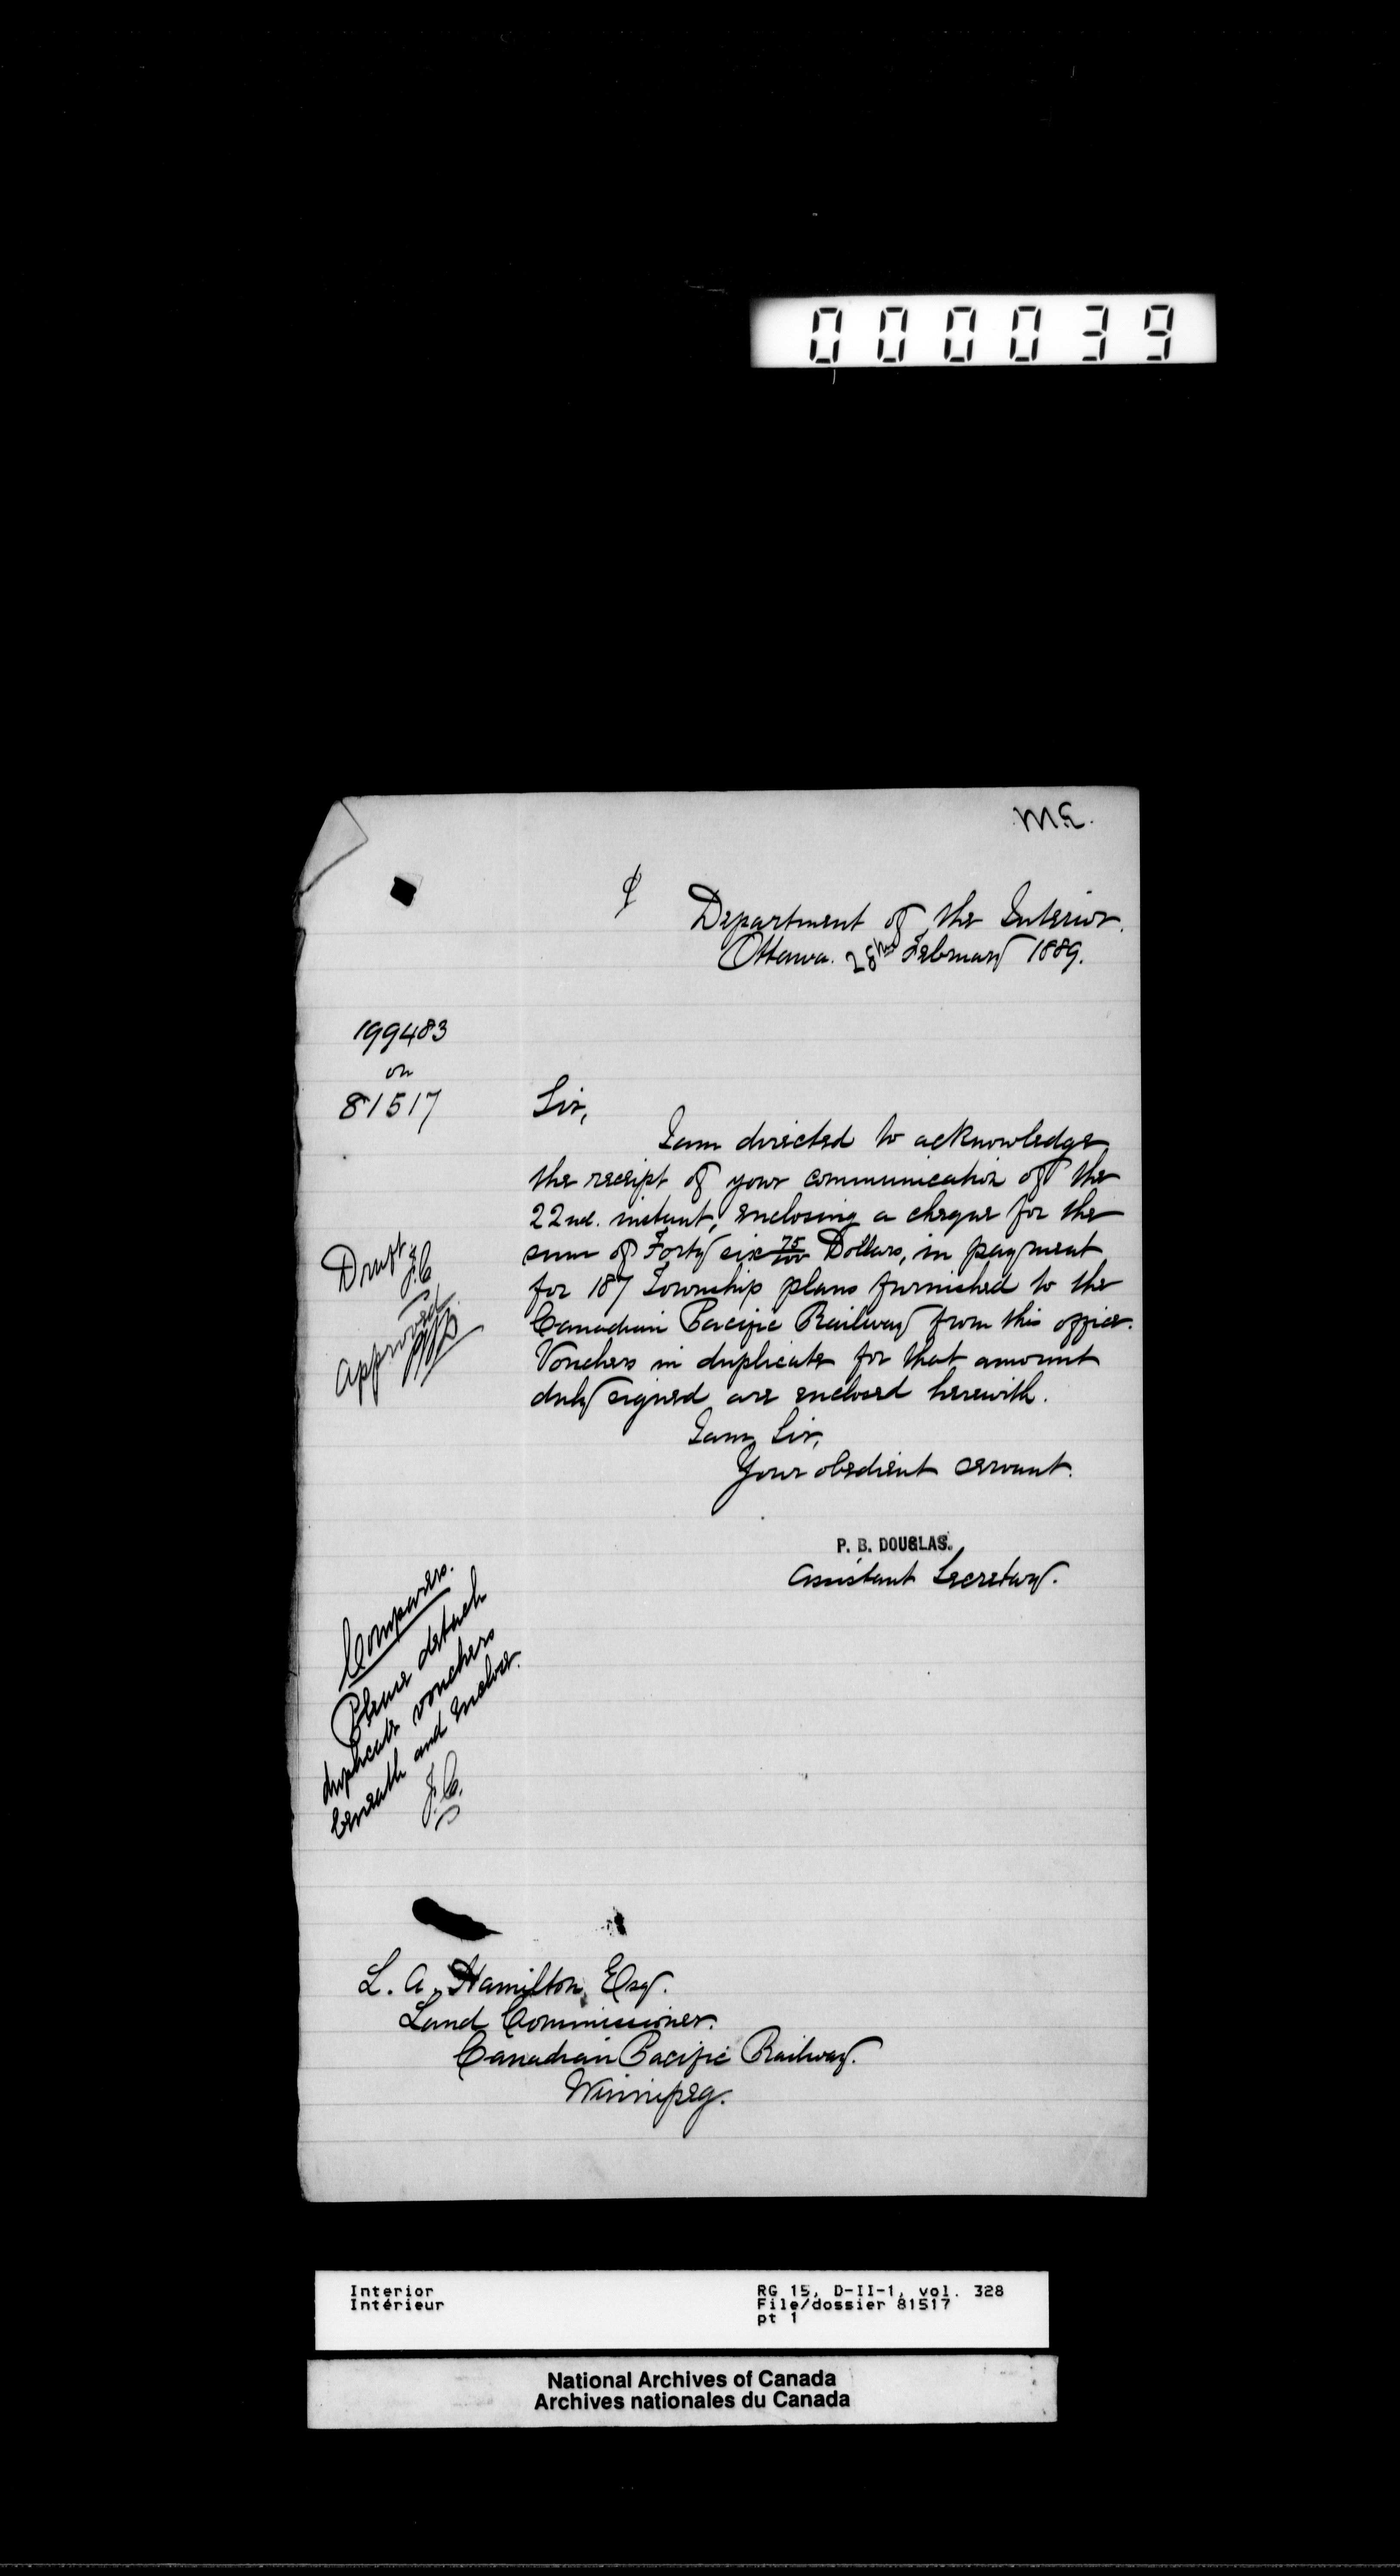 000039
M.E.
Department of the Interior.
Ottawa. 28th February 1889.
199483
on
81517
Sir,
I am directed to acknowledge
the receipt of your communication of the
22nd. instant, enclosing a cheque for the
sum of Forty six 75/100 Dollars, in payment
for 187 Township plans furnished to the
Canadian Pacific Railway from this office.
Vouchers in duplicate for that amount
duly signed are enclosed herewith.
I am, Sir,
Your obedient servant.
Draft
J.C.
approved
P. B. DOUGLAS.
Assistant Secretary.
Comparers.
Please detach
duplicate vouchers
beneath and enclose.
J.C.
L. A. Hamilton, Esq.
Land Commissioner.
Canadian Pacific Railway.
Winnipeg.
Interior
Intérieur
RG 15, D-II-1, vol. 328
File/dossier 81517
pt 1
National Archives of Canada
Archives nationales du Canada